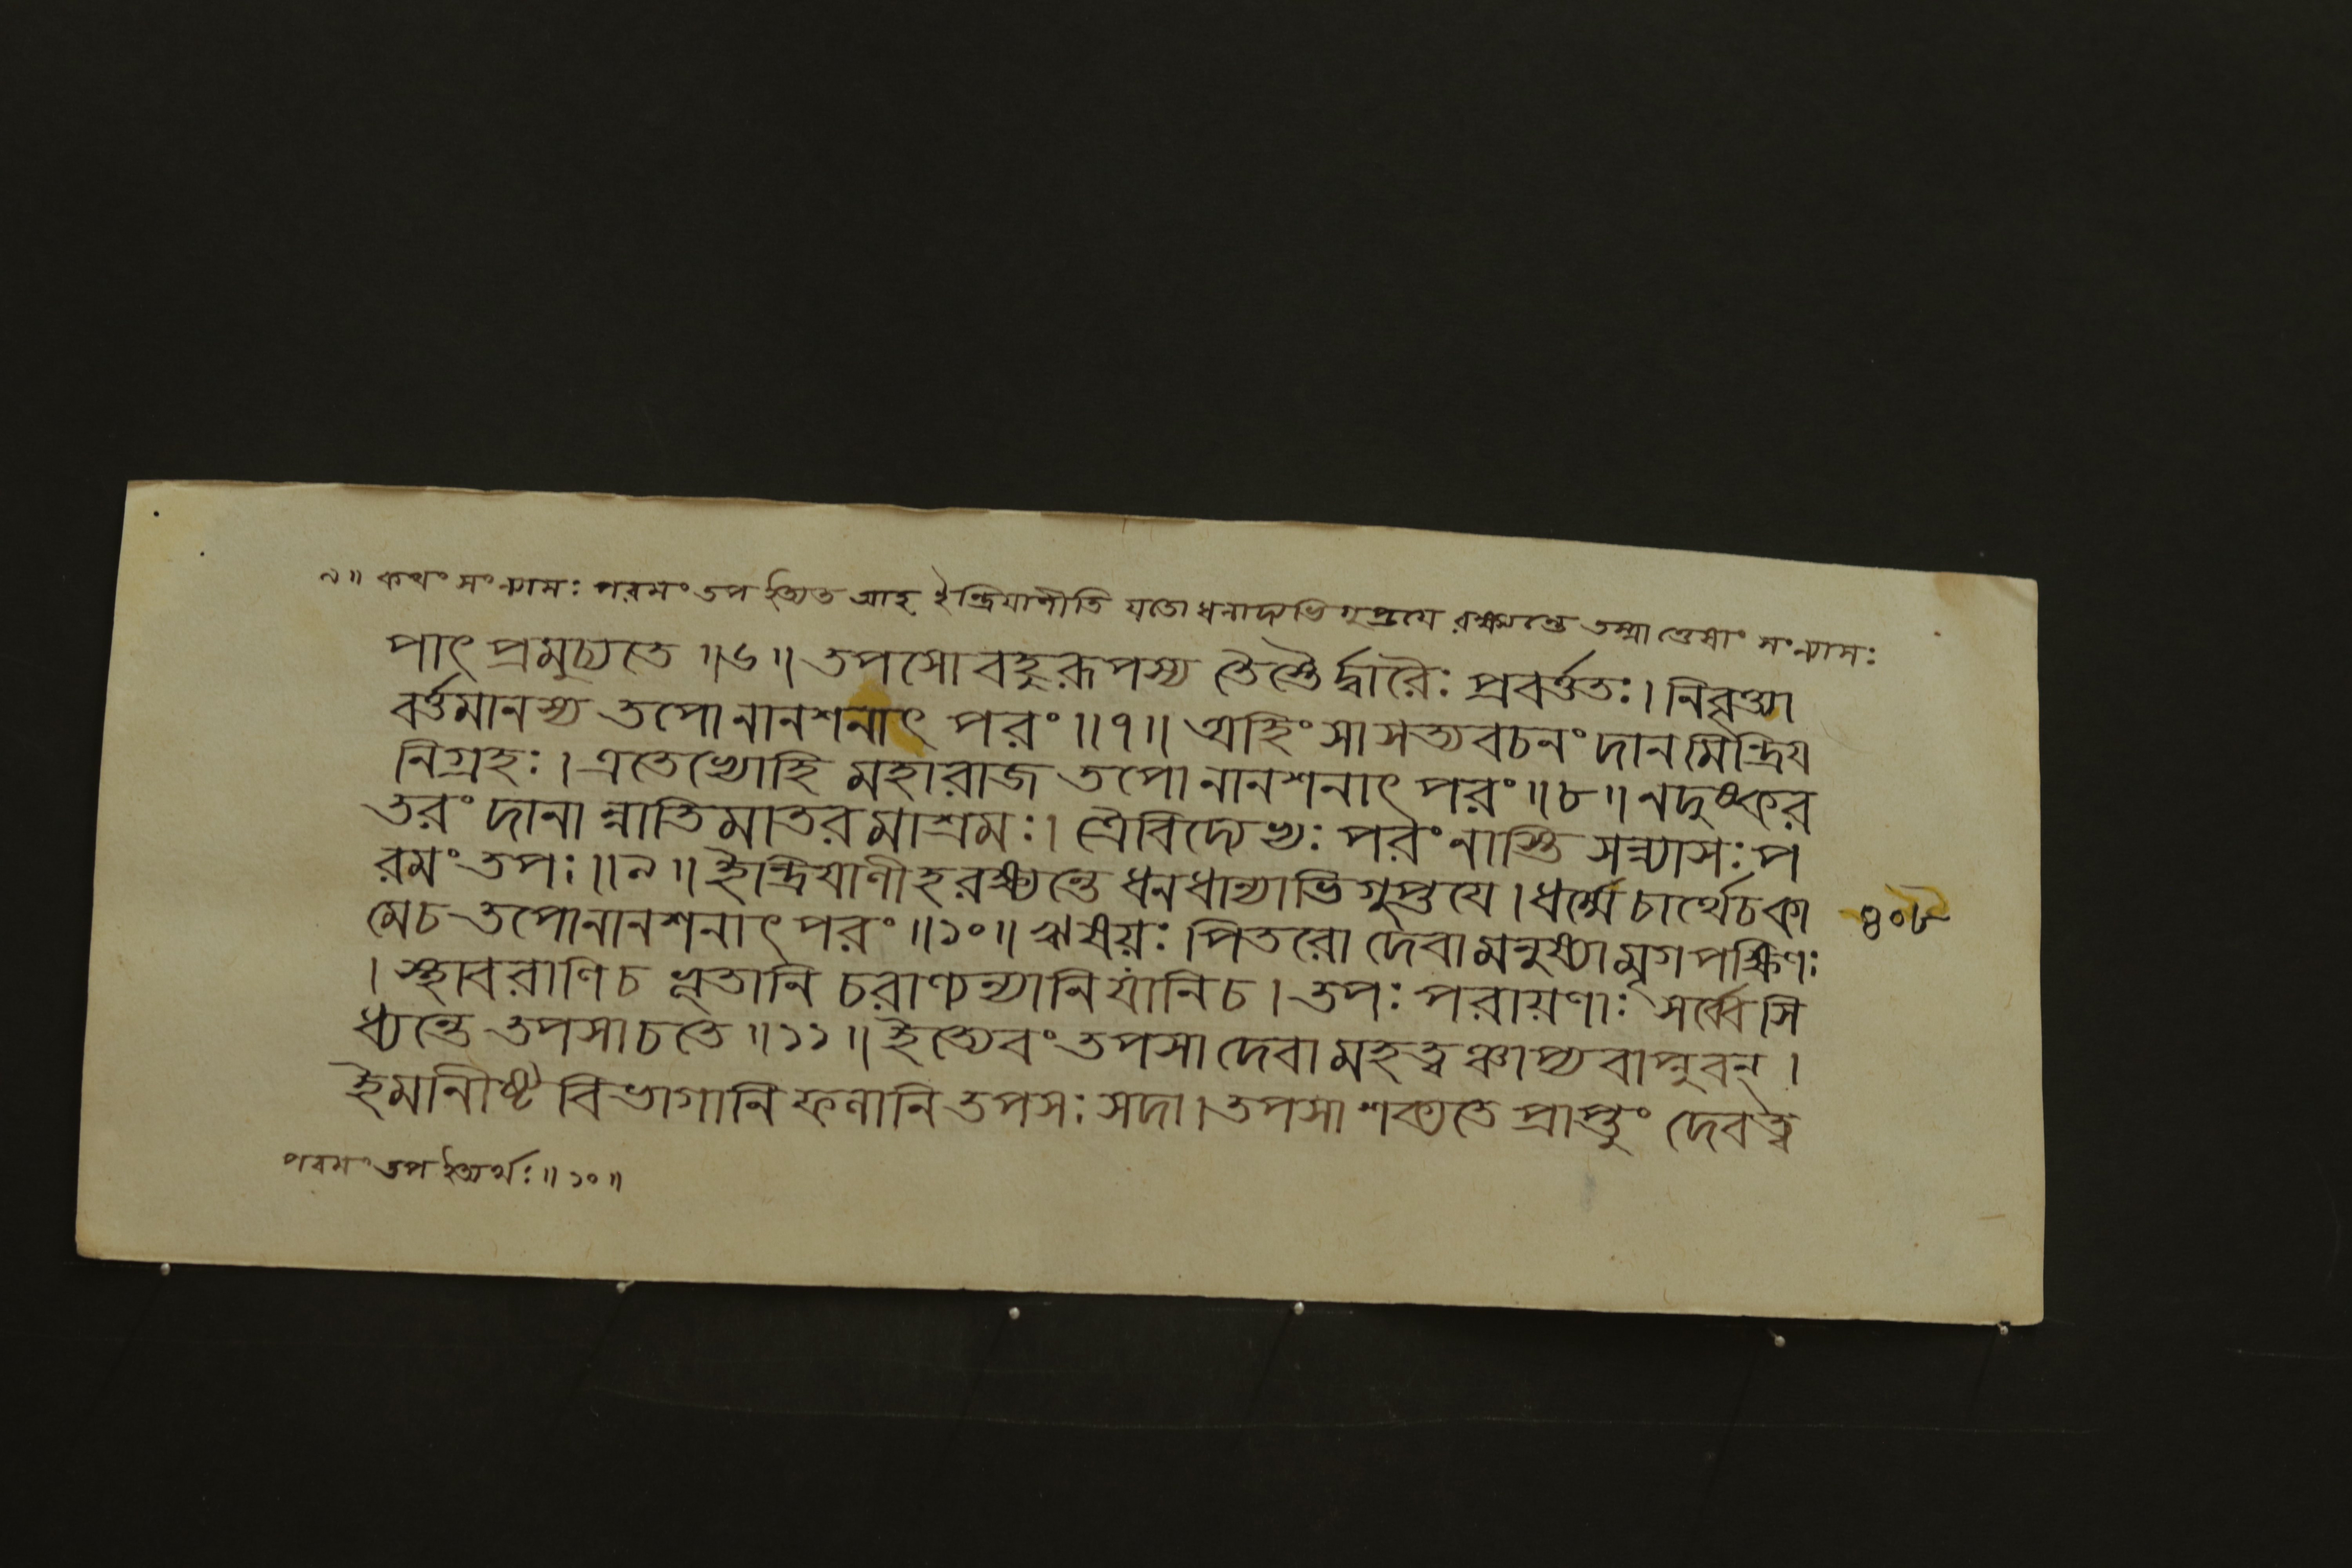 ৯॥ কথং সংন্যাসঃ পরমং তপ ইত্যত আহ ইন্দ্রিয়াণীতি যতো ধনাদ্যভিগুপ্তয়ে রক্ষ্যন্তে তস্মাত্তেষাং সংন্যাসঃ
পাৎ প্রমুচ্যতে ॥৬॥ তপসো বহুরূপস্য তৈস্তৈর্দ্বারৈঃ প্রবর্ত্ততঃ। নিবৃত্ত্যা
বর্ত্তমানস্য তপোনানশনাৎ পরং ॥৭॥ অহিংসা সত্যবচনং দানমিন্দ্রিয
নিগ্রহঃ। এতেভ্যোহি মহারাজ তপোনানশনাৎ পরং ॥৮॥ নদুষ্কর
তরং দানান্নাতিমাতরমাশ্রমঃ। ত্রৈবিদ্যেভ্যঃ পরং নাস্তি সন্ন্যাসঃ প
রমং তপঃ ॥৯॥ ইন্দ্রিযাণীহ রক্ষ্যন্তে ধনধান্যাভিগুপ্তযে। ধর্ম্মে চার্থেচকা
মেচ তপোনানশনাৎ পরং ॥১০॥ ঋষয়ঃ পিতরো দেবা মনুষ্যামৃগপক্ষিণঃ
৪০৮
। স্থাবরাণিচ ভূতানি চরাণ্যন্যানি যানিচ। তপঃ পরায়ণাঃ সর্ব্বেসি
ধ্যন্তে তপসাচতে ॥১১॥ ইত্যেবং তপসা দেবা মহত্ত্বঞ্চাপ্যবাপ্নুবন্।
ইমানীষ্ট বিভাগানি ফলানি তপসঃ সদা। তপসা শক্যতে প্রাপ্তুং দেবত্ব
পরমং তপ ইত্যর্থঃ ॥১০॥